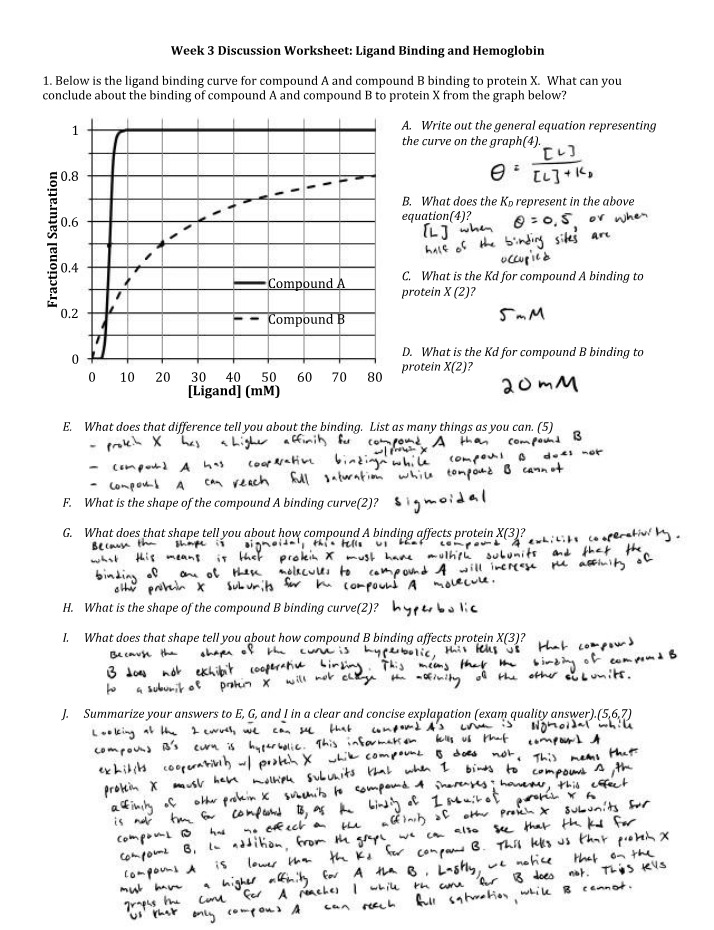 Week 3 Discussion Worksheet: Ligand Binding and Hemoglobin
1. Below is the ligand binding curve for compound A and compound B binding to protein X. What can you
conclude about the binding of compound A and compound B to protein X from the graph below?
1
0.8
0.6
0.4
0.2
0
Fractional Saturation
Compound A
Compound B
0 10 20 30 40 50 60 70 80
[Ligand] (mM)
A. Write out the general equation representing
the curve on the graph(4).
θ = [L] / [L] + KD
B. What does the KD represent in the above
equation(4)?
[L] when θ = 0,5, or when
half of the binding sites are
occupied
C. What is the Kd for compound A binding to
protein X (2)?
5 mM
D. What is the Kd for compound B binding to
protein X(2)?
20 mM
E. What does that difference tell you about the binding. List as many things as you can. (5)
- protein X has a higher affinity for compound A than compound B
- compound A has cooperative binding w/ protein X while compound B does not
- compound A can reach full saturation while compound B cannot
F. What is the shape of the compound A binding curve(2)? sigmoidal
G. What does that shape tell you about how compound A binding affects protein X(3)?
Because the shape is sigmoidal, this tells us that compound A exhibits cooperativity.
what this means is that protein X must have multiple subunits and that the
binding of one of these molecules to compound A will increase the affinity of
other protein X subunits for the compound A molecule.
H. What is the shape of the compound B binding curve(2)? hyperbolic
I. What does that shape tell you about how compound B binding affects protein X(3)?
Because the shape of the curve is hyperbolic, this tells us that compound
B does not exhibit cooperative binding. This means that the binding of compound B
to a subunit of protein X will not change the affinity of the other subunits.
J. Summarize your answers to E, G, and I in a clear and concise explanation (exam quality answer).(5,6,7)
Looking at the 2 curves we can see that compound A's curve is sigmoidal while
compound B's curve is hyperbolic. This information tells us that compound A
exhibits cooperativity w/ protein X while compound B does not. This means that
protein X must have multiple subunits that when 1 binds to compound A, the
affinity of other protein X subunits to compound A increases; however, this effect
is not true for compound B, as the binding of 1 subunit of protein X to
compound B has no effect on the affinity of other protein X subunits for
compound B. In addition, from the graph we can also see that the Kd for
compound A is lower than the Kd for compound B. This tells us that protein X
must have a higher affinity for A than B. Lastly, we notice that on the
graphs the curve for A reaches 1 while the curve for B does not. This tells
us that only compound A can reach full saturation, while B cannot.